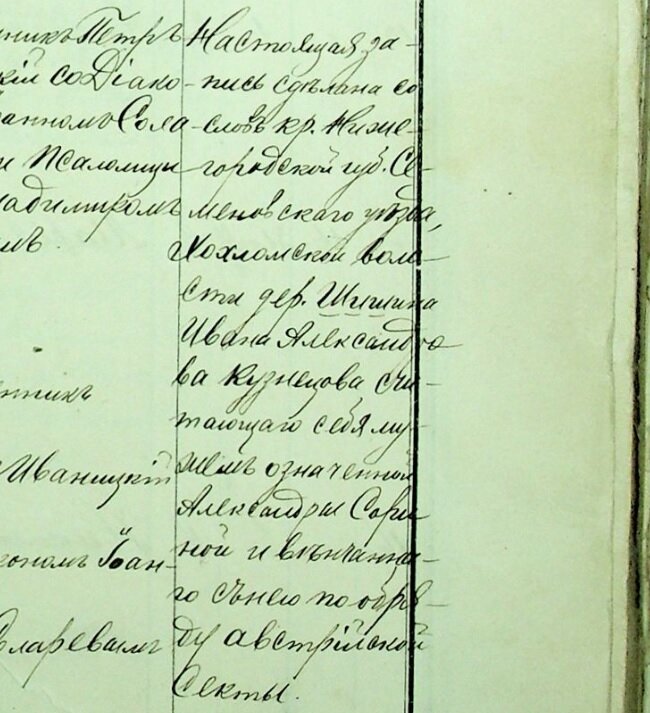 никъ Петръ
кій со Діако-
анномъ Сола-
и Псаломщи
ладиміромъ
имъ.
нникъ
Иваницкій
кономъ Іоан-
Сларевымъ
Настоящая за-
пись сдѣлана со
словъ кр. Ниже-
городской губ. Се-
меновскаго уѣзда,
Хохломской воло-
сти дер. Шишина
Ивана Александро
ва Кузнецова счи-
тающаго себя му-
жемъ означенной
Александры Сори
ной и вѣнчанна-
го съ нею по обря-
ду австрійской
секты.